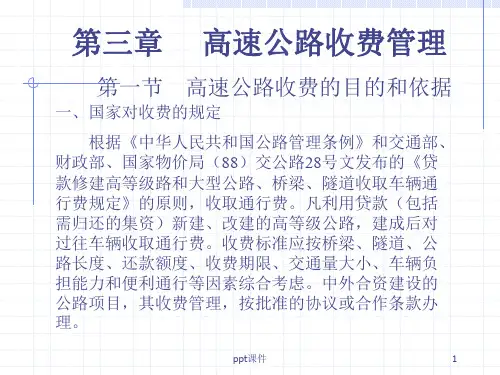 第三章 高速公路收费管理
第一节 高速公路收费的目的和依据
一、国家对收费的规定
根据《中华人民共和国公路管理条例》和交通部、
财政部、国家物价局（88）交公路28号文发布的《贷
款修建高等级路和大型公路、桥梁、隧道收取车辆通
行费规定》的原则，收取通行费。凡利用贷款（包括
需归还的集资）新建、改建的高等级公路，建成后对
过往车辆收取通行费。收费标准应按桥梁、隧道、公
路长度、还款额度、收费期限、交通量大小、车辆负
担能力和便利通行等因素综合考虑。中外合资建设的
公路项目，其收费管理，按批准的协议或合作条款办
理。
ppt课件
1